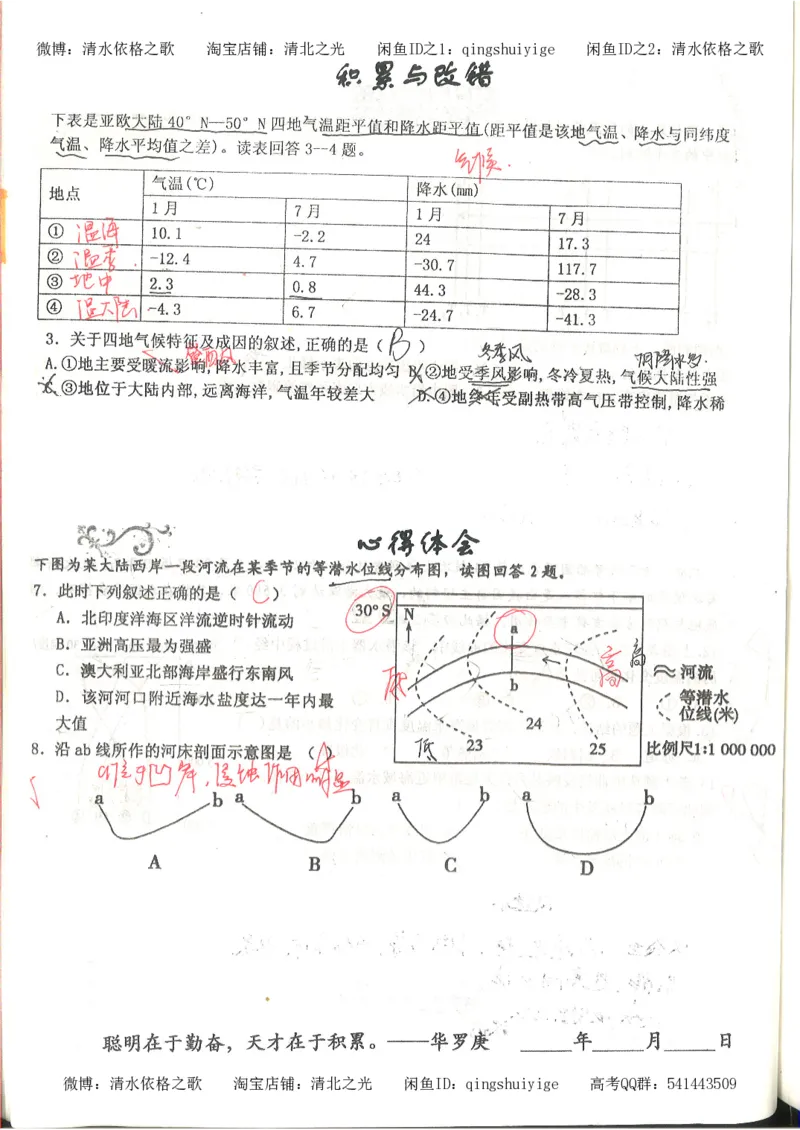 微博：清水依格之歌 淘宝店铺：清北之光 闲鱼ID之1：qingshuiyige 闲鱼ID之2：清水依格之歌
积累与改错
下表是亚欧大陆 40°N—50°N 四地气温距平值和降水距平值(距平值是该地气温、降水与同纬度
气温、降水平均值之差)。读表回答 3--4 题。
气候.
地点 气温(℃) 降水(mm)
1月 7月 1月 7月
① 温海 10.1 -2.2 24 17.3
② 温季 -12.4 4.7 -30.7 117.7
③ 地中 2.3 0.8 44.3 -28.3
④ 温大陆 -4.3 6.7 -24.7 -41.3
3. 关于四地气候特征及成因的叙述,正确的是( B )
冬季风
A.①地主要受暖流影响,降水丰富,且季节分配均匀 B.②地受季风影响,冬冷夏热,气候大陆性强
C.③地位于大陆内部,远离海洋,气温年较差大 D.④地终年受副热带高气压带控制,降水稀
心得体会
下图为某大陆西岸一段河流在某季节的等潜水位线分布图，读图回答 2 题。
7. 此时下列叙述正确的是（ C ）
A. 北印度洋海区洋流逆时针流动
B. 亚洲高压最为强盛
C. 澳大利亚北部海岸盛行东南风
D. 该河河口附近海水盐度达一年内最
大值
30°S N
a
b
高
高
低
23
24
25
河流
等潜水
位线(米)
比例尺1:1 000 000
8. 沿 ab 线所作的河床剖面示意图是 （ A ）
a b a b a b a b
A B C D
聪明在于勤奋，天才在于积累。——华罗庚 _____年_____月_____日
微博：清水依格之歌 淘宝店铺：清北之光 闲鱼ID：qingshuiyige 高考QQ群：541443509